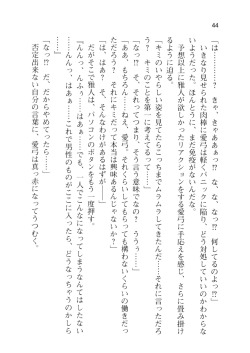 44
「は……？　きゃ、きゃあああっ!?　な、な、なっ!?　何してるのよっ!?」
いきなり見せられた肉棒に愛弓は軽くパニックに陥り、どう対処していいかわからな
まだ免疫がない
予想以上に雅人が欲しかったリアクションをする愛弓に手応えを感じ、さらに畳み掛け
るように迫る。
「キミのいやらしい姿を見てたらこっちまでムラムラしてきたんだ……それに言っただろ
う？　キミのことを第一に考えてるって……」
そう言う意味でなのっ!?」
「ああ、もちろん。
本当は興味あるんじゃないか？」
「なっ!?　そんなわけあるはずが――」
だがそこで雅人は、パソコンのボタンをもう一度押す。
『んんっ、んふぅ……はぁっ……でも、一人でこんなになってしまうなんてはしたない
……んんっ、はぁっ……これで男性のものが……どうなっちゃうのかしら
「なっ!?　だ、だからやめてったら――」
否定出来ない自分の言葉に、愛弓は真っ赤になってうつむく。